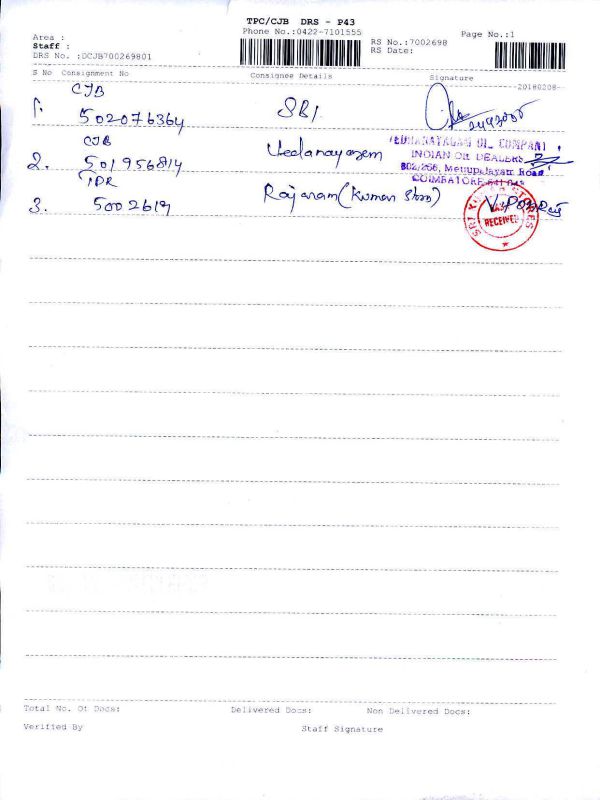 TPC/CJB DRS - P43
Phone No.:0422-7101555
Area :
Staff :
DRS No. :DCJB700269801
RS No.:7002698
RS Date:
Page No.:1
S No Consignment No Consignee Details Signature
20180208
CJB
1. 502076364 SBI
CJB
2. 501956814 Vedanayagem
VEDHANAYAGAM OIL COMPANY
INDIAN OIL DEALERS
802/266, Mettupalayam Road
COIMBATORE
TDR
3. 5002619 Rajaram (Kuman Store)
RECEIVED
STORES
Total No. Of Docs: Delivered Docs: Non Delivered Docs:
Verified By Staff Signature